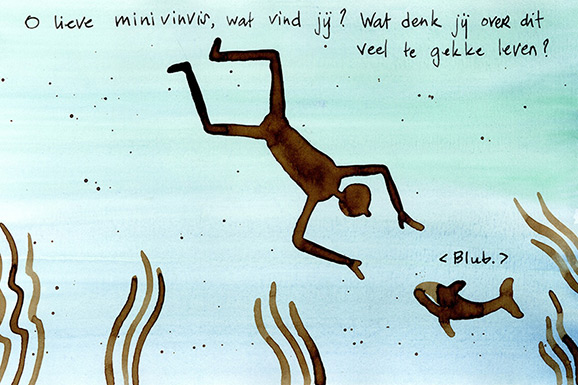 O lieve minivinvis, wat vind jij? Wat denk jij over dit
veel te gekke leven?
< Blub. >